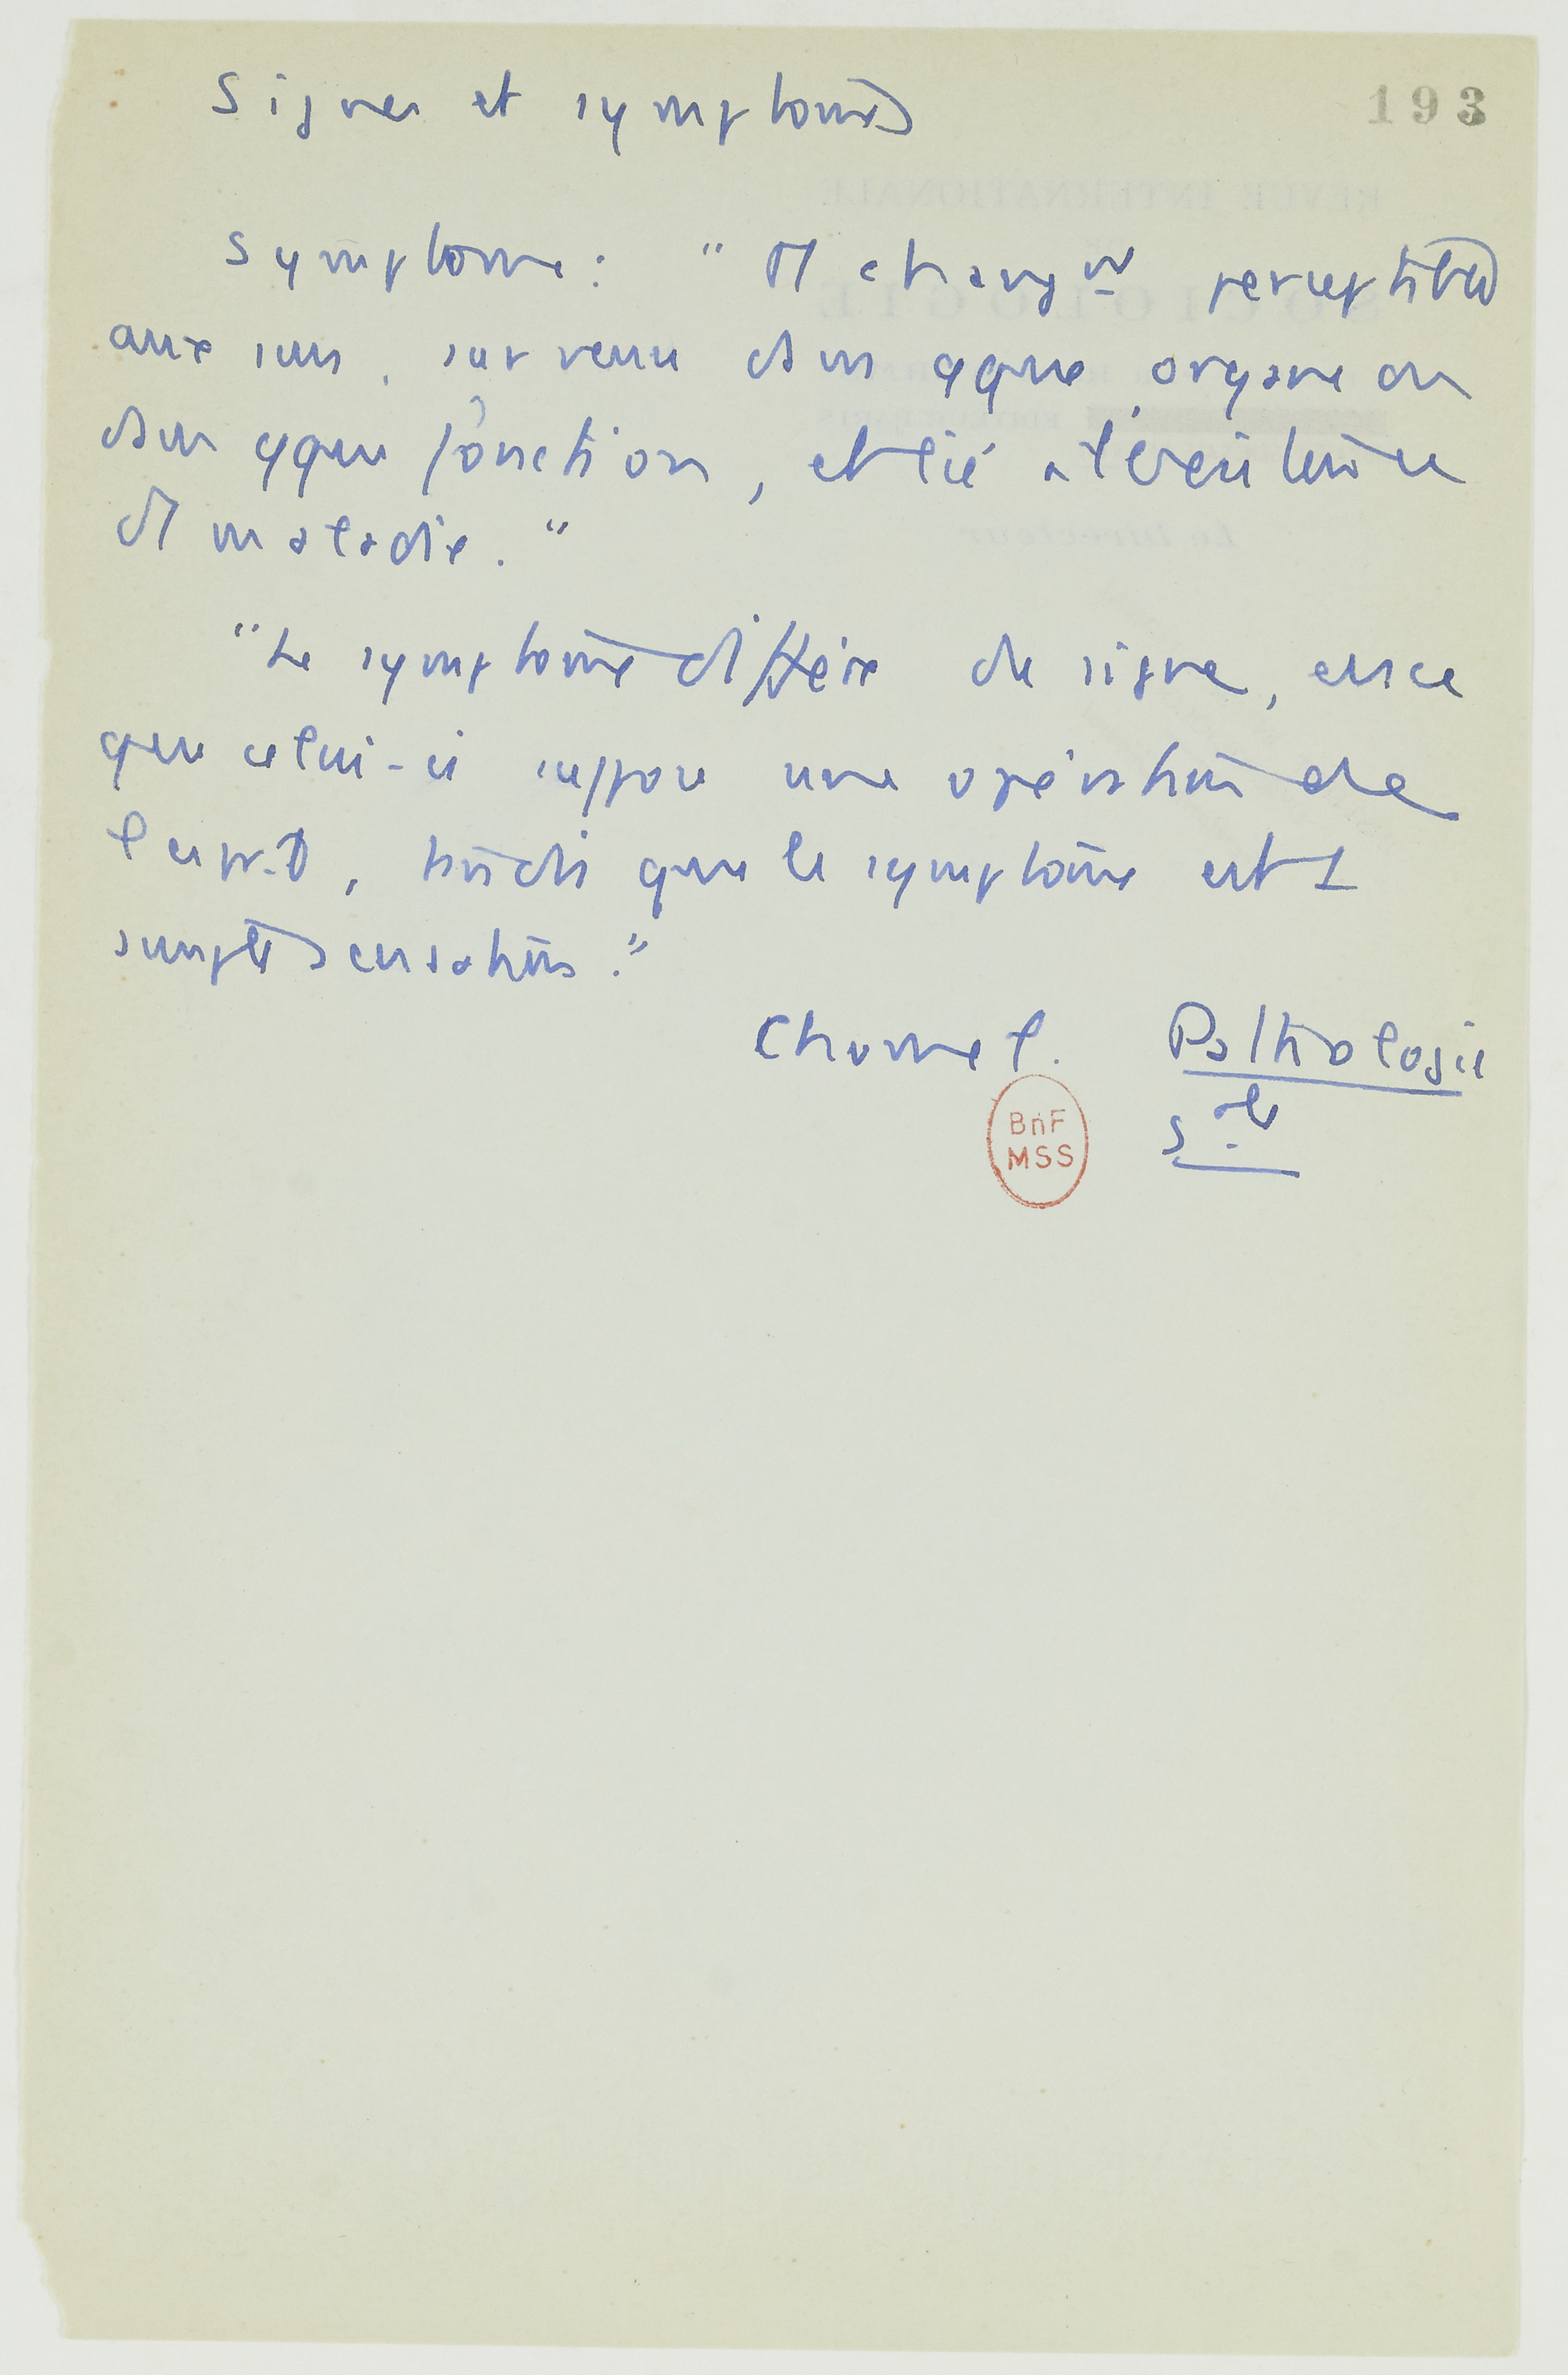 193
Signes et symptomes
Symptome : " changt perceptible
aux sens, survenu dans qque organe ou
dans qque fonction, et lié à l'existence
d'1 maladie."
"Le symptome diffère du signe, en ce
que celui-ci suppose une opération de
l'esprit, tandis que le symptome est 1
simple sensation."
Chomel. Pathologie
gale
BnF
MSS